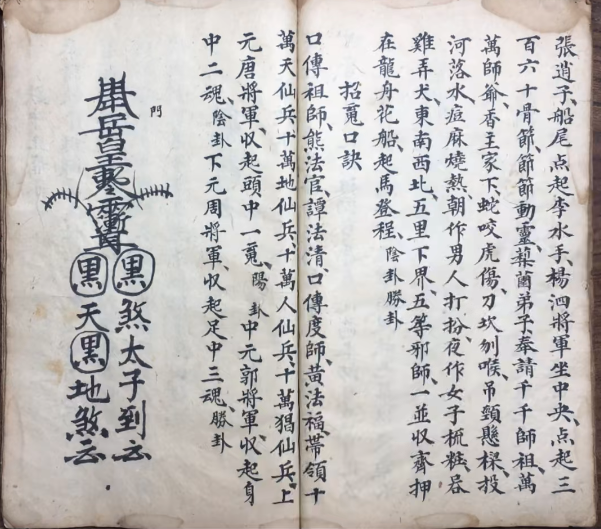 張逍子、船尾点起李水手、楊泗將軍坐中央、点起三
百六十骨節、節節動靈、弟子奉請千千師祖、萬
萬師爺、香主家下、蛇咬虎傷、刀坎刎喉、吊頸懸樑、投
河落水、痘麻燒熱、朝作男人打扮、夜作女子梳粧、呑
雞弄犬、東南西北、五里下界五等邪師、一並収齊押
在龍舟花船、起馬登程、陰卦勝卦
招䰟口訣
口傳祖師、熊法官、譚法清、口傳度師、黃法福、帶領十
萬天仙兵、十萬地仙兵、十萬人仙兵、十萬猖仙兵、上
元唐將軍、収起頭中一䰟、陽卦中元郭將軍、収起身
中二魂、陰卦下元周將軍、収起足中三魂、勝卦
門
黒煞太子到云
黒天黒地煞云